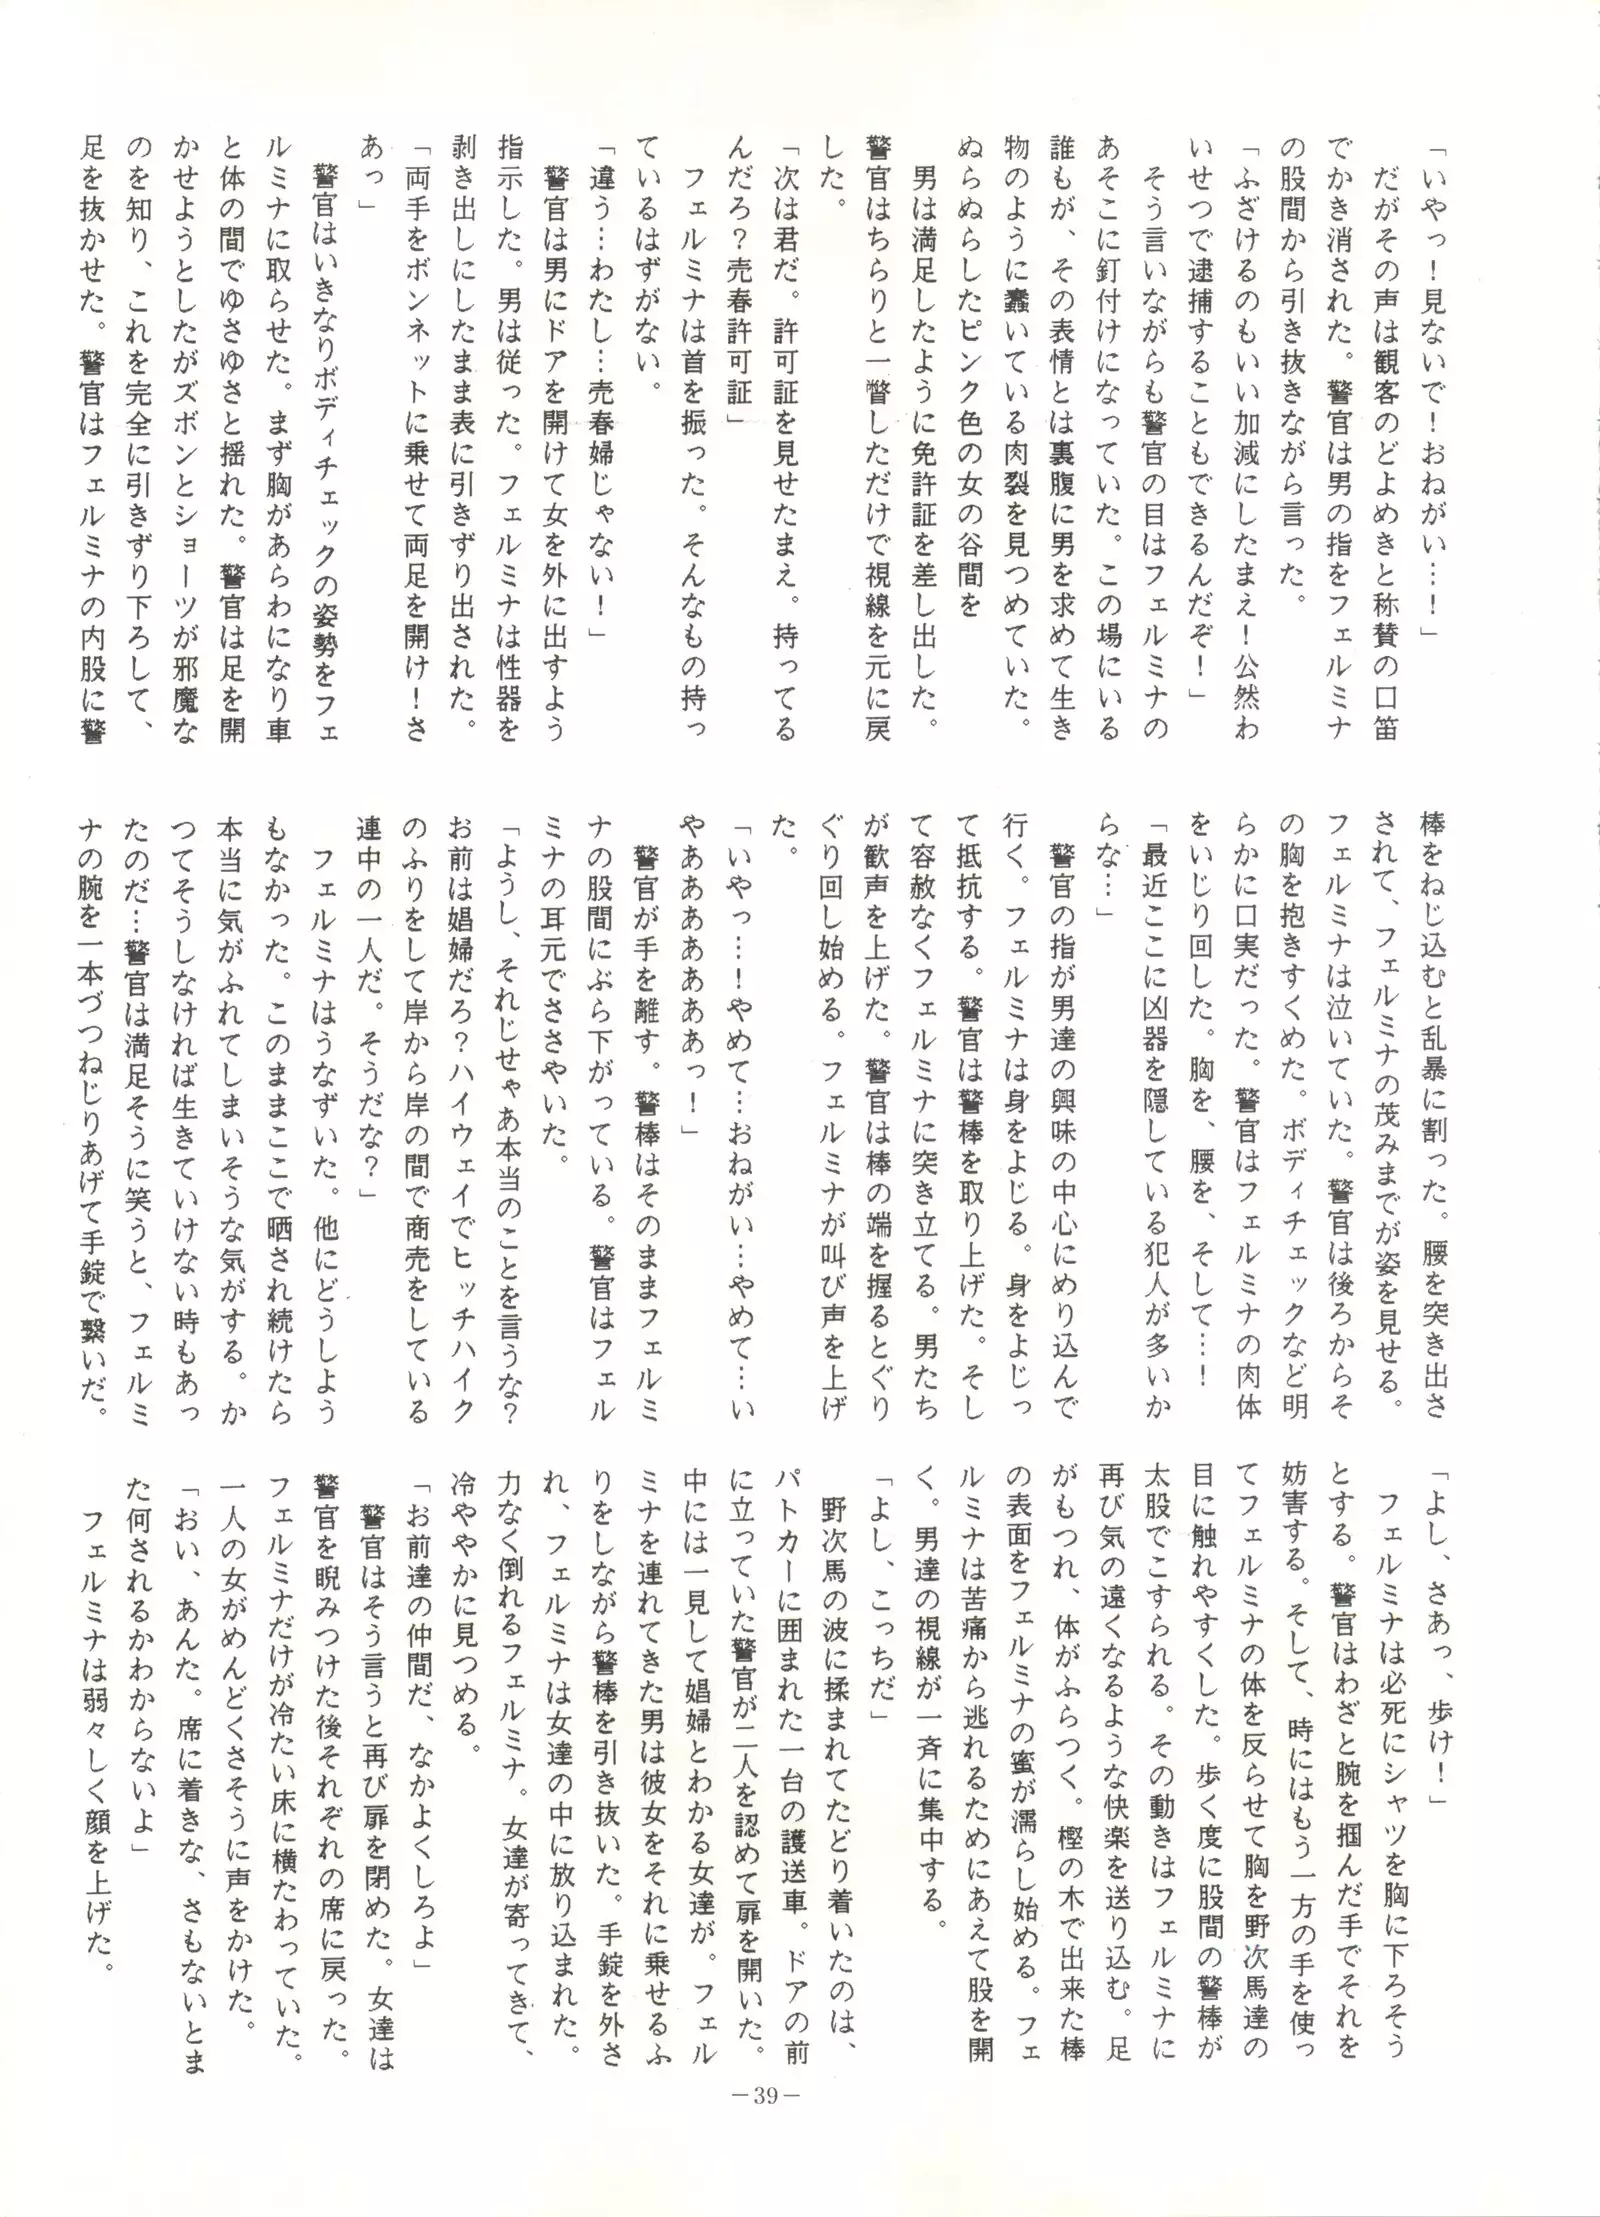 「いやっ！見ないで！おねがい…！」
　だがその声は観客のどよめきと称賛の口笛
でかき消された。警官は男の指をフェルミナ
の股間から引き抜きながら言った。
「ふざけるのもいい加減にしたまえ！公然わ
いせつで逮捕することもできるんだぞ！」
　そう言いながらも警官の目はフェルミナの
あそこに釘付けになっていた。この場にいる
誰もが、その表情とは裏腹に男を求めて生き
物のように蠢いている肉裂を見つめていた。
ぬらぬらしたピンク色の女の谷間を
　男は満足したように免許証を差し出した。
警官はちらりと一瞥しただけで視線を元に戻
した。
「次は君だ。許可証を見せたまえ。持ってる
んだろ？売春許可証」
　フェルミナは首を振った。そんなもの持っ
ているはずがない。
「違う…わたし…売春婦じゃない！」
　警官は男にドアを開けて女を外に出すよう
指示した。男は従った。フェルミナは性器を
剥き出しにしたまま表に引きずり出された。
「両手をボンネットに乗せて両足を開け！さ
あっ」
　警官はいきなりボディチェックの姿勢をフェ
ルミナに取らせた。まず胸があらわになり車
と体の間でゆさゆさと揺れた。警官は足を開
かせようとしたがズボンとショーツが邪魔な
のを知り、これを完全に引きずり下ろして、
足を抜かせた。警官はフェルミナの内股に警
棒をねじ込むと乱暴に割った。腰を突き出さ
されて、フェルミナの茂みまでが姿を見せる。
フェルミナは泣いていた。警官は後ろからそ
の胸を抱きすくめた。ボディチェックなど明
らかに口実だった。警官はフェルミナの肉体
をいじり回した。胸を、腰を、そして…！
「最近ここに凶器を隠している犯人が多いか
らな…」
　警官の指が男達の興味の中心にめり込んで
行く。フェルミナは身をよじる。身をよじっ
て抵抗する。警官は警棒を取り上げた。そし
て容赦なくフェルミナに突き立てる。男たち
が歓声を上げた。警官は棒の端を握るとぐり
ぐり回し始める。フェルミナが叫び声を上げ
た。
「いやっ…！やめて…おねがい…やめて…い
やああああああああっ！」
　警官が手を離す。警棒はそのままフェルミ
ナの股間にぶら下がっている。警官はフェル
ミナの耳元でささやいた。
「ようし、それじせゃあ本当のことを言うな？
お前は娼婦だろ？ハイウェイでヒッチハイク
のふりをして岸から岸の間で商売をしている
連中の一人だ。そうだな？」
　フェルミナはうなずいた。他にどうしよう
もなかった。このままここで晒され続けたら
本当に気がふれてしまいそうな気がする。か
つてそうしなければ生きていけない時もあっ
たのだ…警官は満足そうに笑うと、フェルミ
ナの腕を一本づつねじりあげて手錠で繋いだ。
「よし、さあっ、歩け！」
　フェルミナは必死にシャツを胸に下ろそう
とする。警官はわざと腕を掴んだ手でそれを
妨害する。そして、時にはもう一方の手を使っ
てフェルミナの体を反らせて胸を野次馬達の
目に触れやすくした。歩く度に股間の警棒が
太股でこすられる。その動きはフェルミナに
再び気の遠くなるような快楽を送り込む。足
がもつれ、体がふらつく。樫の木で出来た棒
の表面をフェルミナの蜜が濡らし始める。フェ
ルミナは苦痛から逃れるためにあえて股を開
く。男達の視線が一斉に集中する。
「よし、こっちだ」
　野次馬の波に揉まれてたどり着いたのは、
パトカーに囲まれた一台の護送車。ドアの前
に立っていた警官が二人を認めて扉を開いた。
中には一見して娼婦とわかる女達が。フェル
ミナを連れてきた男は彼女をそれに乗せるふ
りをしながら警棒を引き抜いた。手錠を外さ
れ、フェルミナは女達の中に放り込まれた。
力なく倒れるフェルミナ。女達が寄ってきて、
冷ややかに見つめる。
「お前達の仲間だ、なかよくしろよ」
　警官はそう言うと再び扉を閉めた。女達は
警官を睨みつけた後それぞれの席に戻った。
フェルミナだけが冷たい床に横たわっていた。
一人の女がめんどくさそうに声をかけた。
「おい、あんた。席に着きな、さもないとま
た何されるかわからないよ」
　フェルミナは弱々しく顔を上げた。
－39－